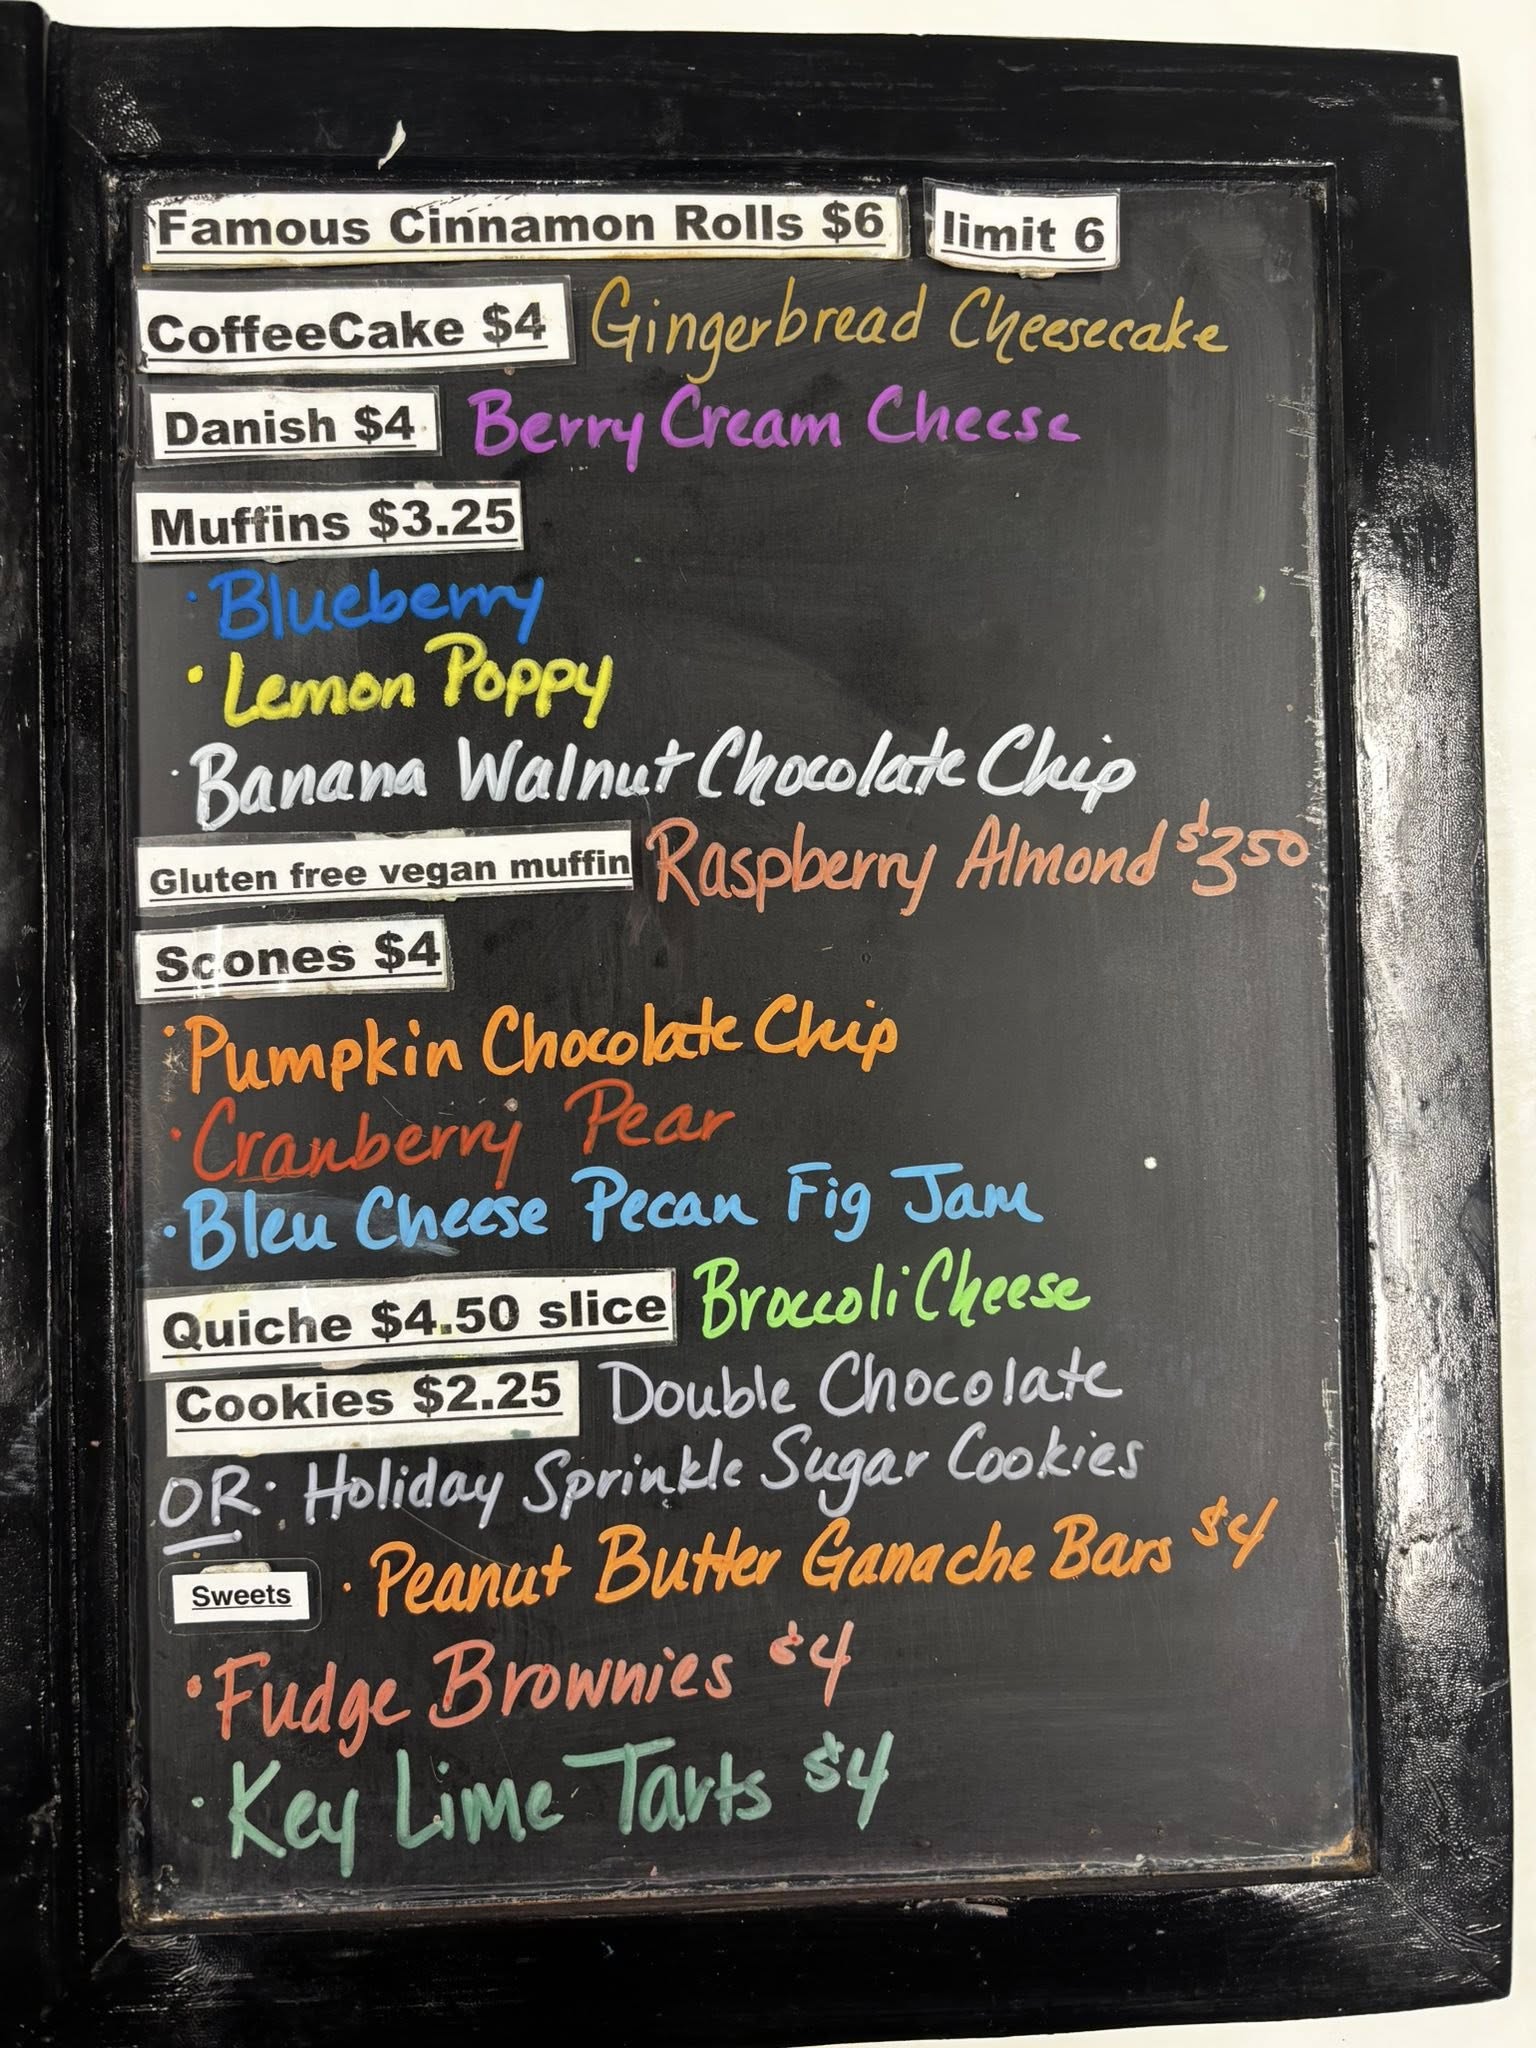 Famous Cinnamon Rolls $6 limit 6
CoffeeCake $4 Gingerbread Cheesecake
Danish $4 Berry Cream Cheese
Muffins $3.25
· Blueberry
· Lemon Poppy
· Banana Walnut Chocolate Chip
Gluten free vegan muffin Raspberry Almond $3 50
Scones $4
· Pumpkin Chocolate Chip
· Cranberry Pear
· Bleu Cheese Pecan Fig Jam
Quiche $4.50 slice Broccoli Cheese
Cookies $2.25 Double Chocolate
OR · Holiday Sprinkle Sugar Cookies
Sweets · Peanut Butter Ganache Bars $4
· Fudge Brownies $4
· Key Lime Tarts $4